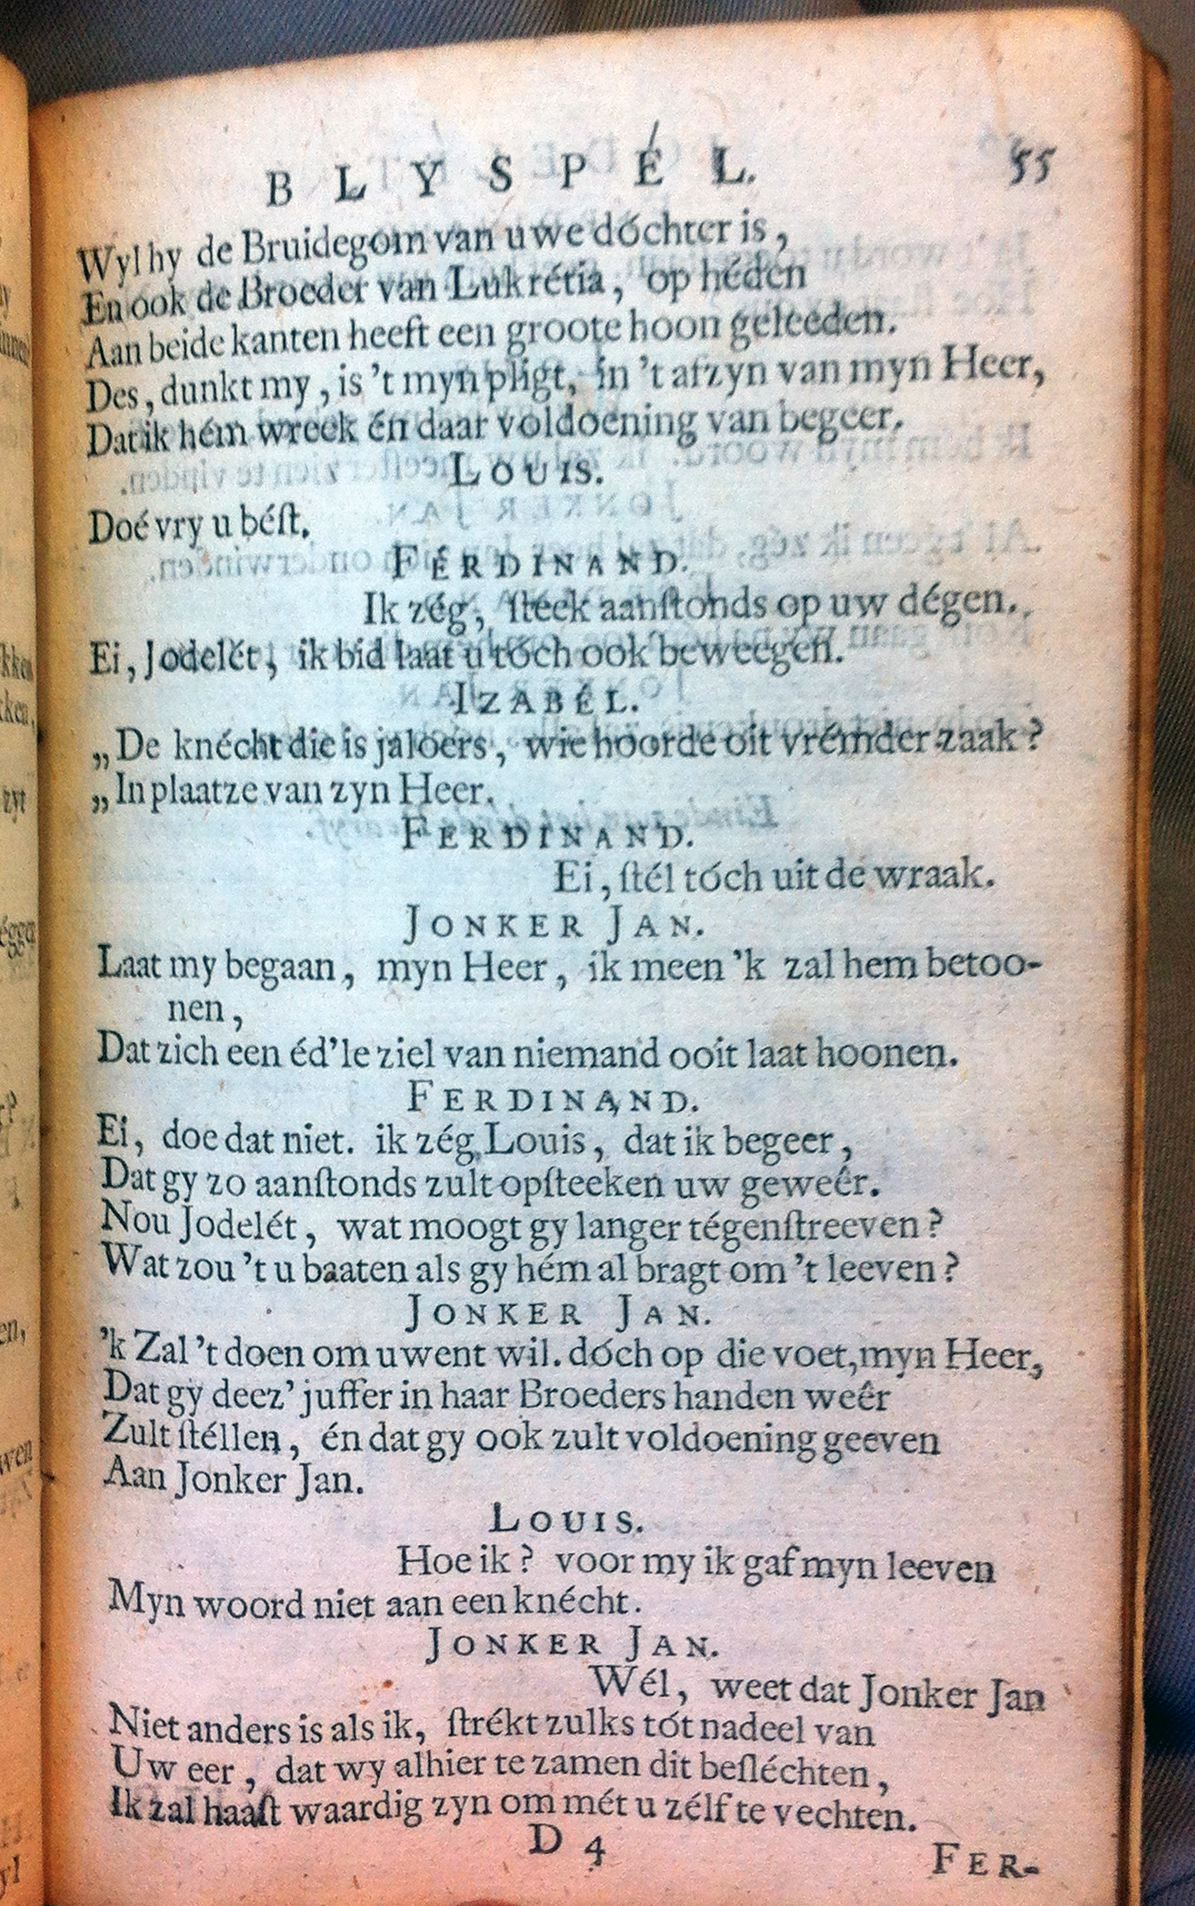 BLYSPÉL. 55
Wyl hy de Bruidegom van uwe dóchter is,
En ook de Broeder van Lukrétia, op héden
Aan beide kanten heeft een groote hoon geleeden.
Des, dunkt my, is 't myn pligt, in 't afzyn van myn Heer,
Dat ik hém wreek én daar voldoening van begeer.
LOUIS.
Doé vry u bést.
FÉRDINAND.
Ik zég, steek aanstonds op uw dégen.
Ei, Jodelét, ik bid laat u tóch ook beweegen.
IZABÉL.
„De knécht die is jaloers, wie hoorde oit vrémder zaak?
„In plaatze van zyn Heer.
FERDINAND.
Ei, stél tóch uit de wraak.
JONKER JAN.
Laat my begaan, myn Heer, ik meen 'k zal hem betoo-
nen,
Dat zich een éd'le ziel van niemand ooit laat hoonen.
FERDINAND.
Ei, doe dat niet. ik zég Louis, dat ik begeer,
Dat gy zo aanstonds zult opsteeken uw geweêr.
Nou Jodelét, wat moogt gy langer tégenstreeven?
Wat zou 't u baaten als gy hém al bragt om 't leeven?
JONKER JAN.
'k Zal 't doen om uwent wil. dóch op die voet, myn Heer,
Dat gy deez' juffer in haar Broeders handen weêr
Zult stéllen, én dat gy ook zult voldoening geeven
Aan Jonker Jan.
LOUIS.
Hoe ik? voor my ik gaf myn leeven
Myn woord niet aan een knécht.
JONKER JAN.
Wél, weet dat Jonker Jan
Niet anders is als ik, strékt zulks tót nadeel van
Uw eer, dat wy alhier te zamen dit besléchten,
Ik zal haast waardig zyn om mét u zélf te vechten.
D 4
FER-